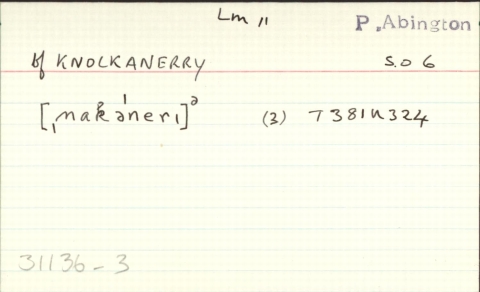 Lm 11
P. Abington
bf KNOLKANERRY
S.O 6
[ˌnakˈəneri]²
(3) T381N324
31136-3